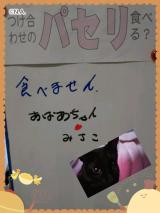 つけ合わせの パセリ 食べる?
食べません
おばあちゃん
みさこ